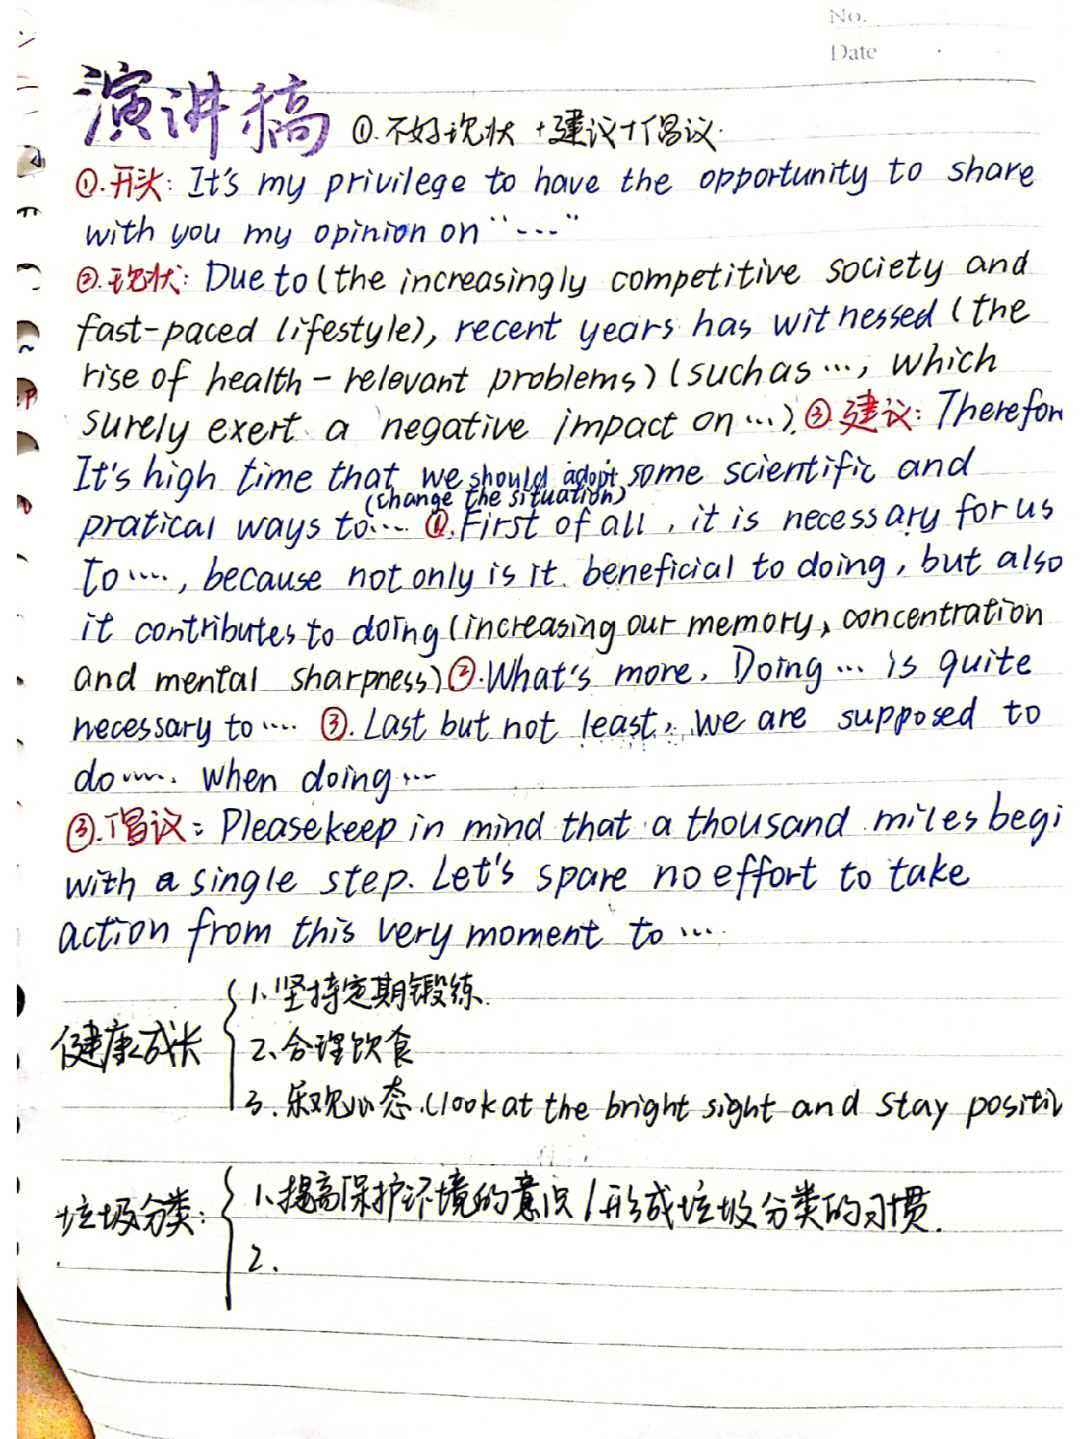 No.
Date
演讲稿 ①.不好现状 +建议+倡议.
①.开头: It's my privilege to have the opportunity to share
with you my opinion on "..."
②.现状: Due to (the increasingly competitive society and
fast-paced lifestyle), recent years has witnessed (the
rise of health-relevant problems) (such as ..., which
surely exert a negative impact on ...). ③建议: Therefor
It's high time that we should adopt some scientific and
(change the situation)
pratical ways to.... ①.First of all, it is necessary for us
to ...., because not only is it beneficial to doing, but also
it contributes to doing (increasing our memory, concentration
and mental sharpness) ②.What's more, Doing ... is quite
necessary to .... ③. Last but not least, we are supposed to
do ..... when doing ...
③.倡议: Please keep in mind that a thousand miles begi
with a single step. Let's spare no effort to take
action from this very moment to ....
健康成长
1、坚持定期锻练.
2、合理饮食
3. 乐观心态.(look at the bright sight and stay positiv
垃圾分类:
1.提高保护环境的意识/形成垃圾分类的习惯.
2.